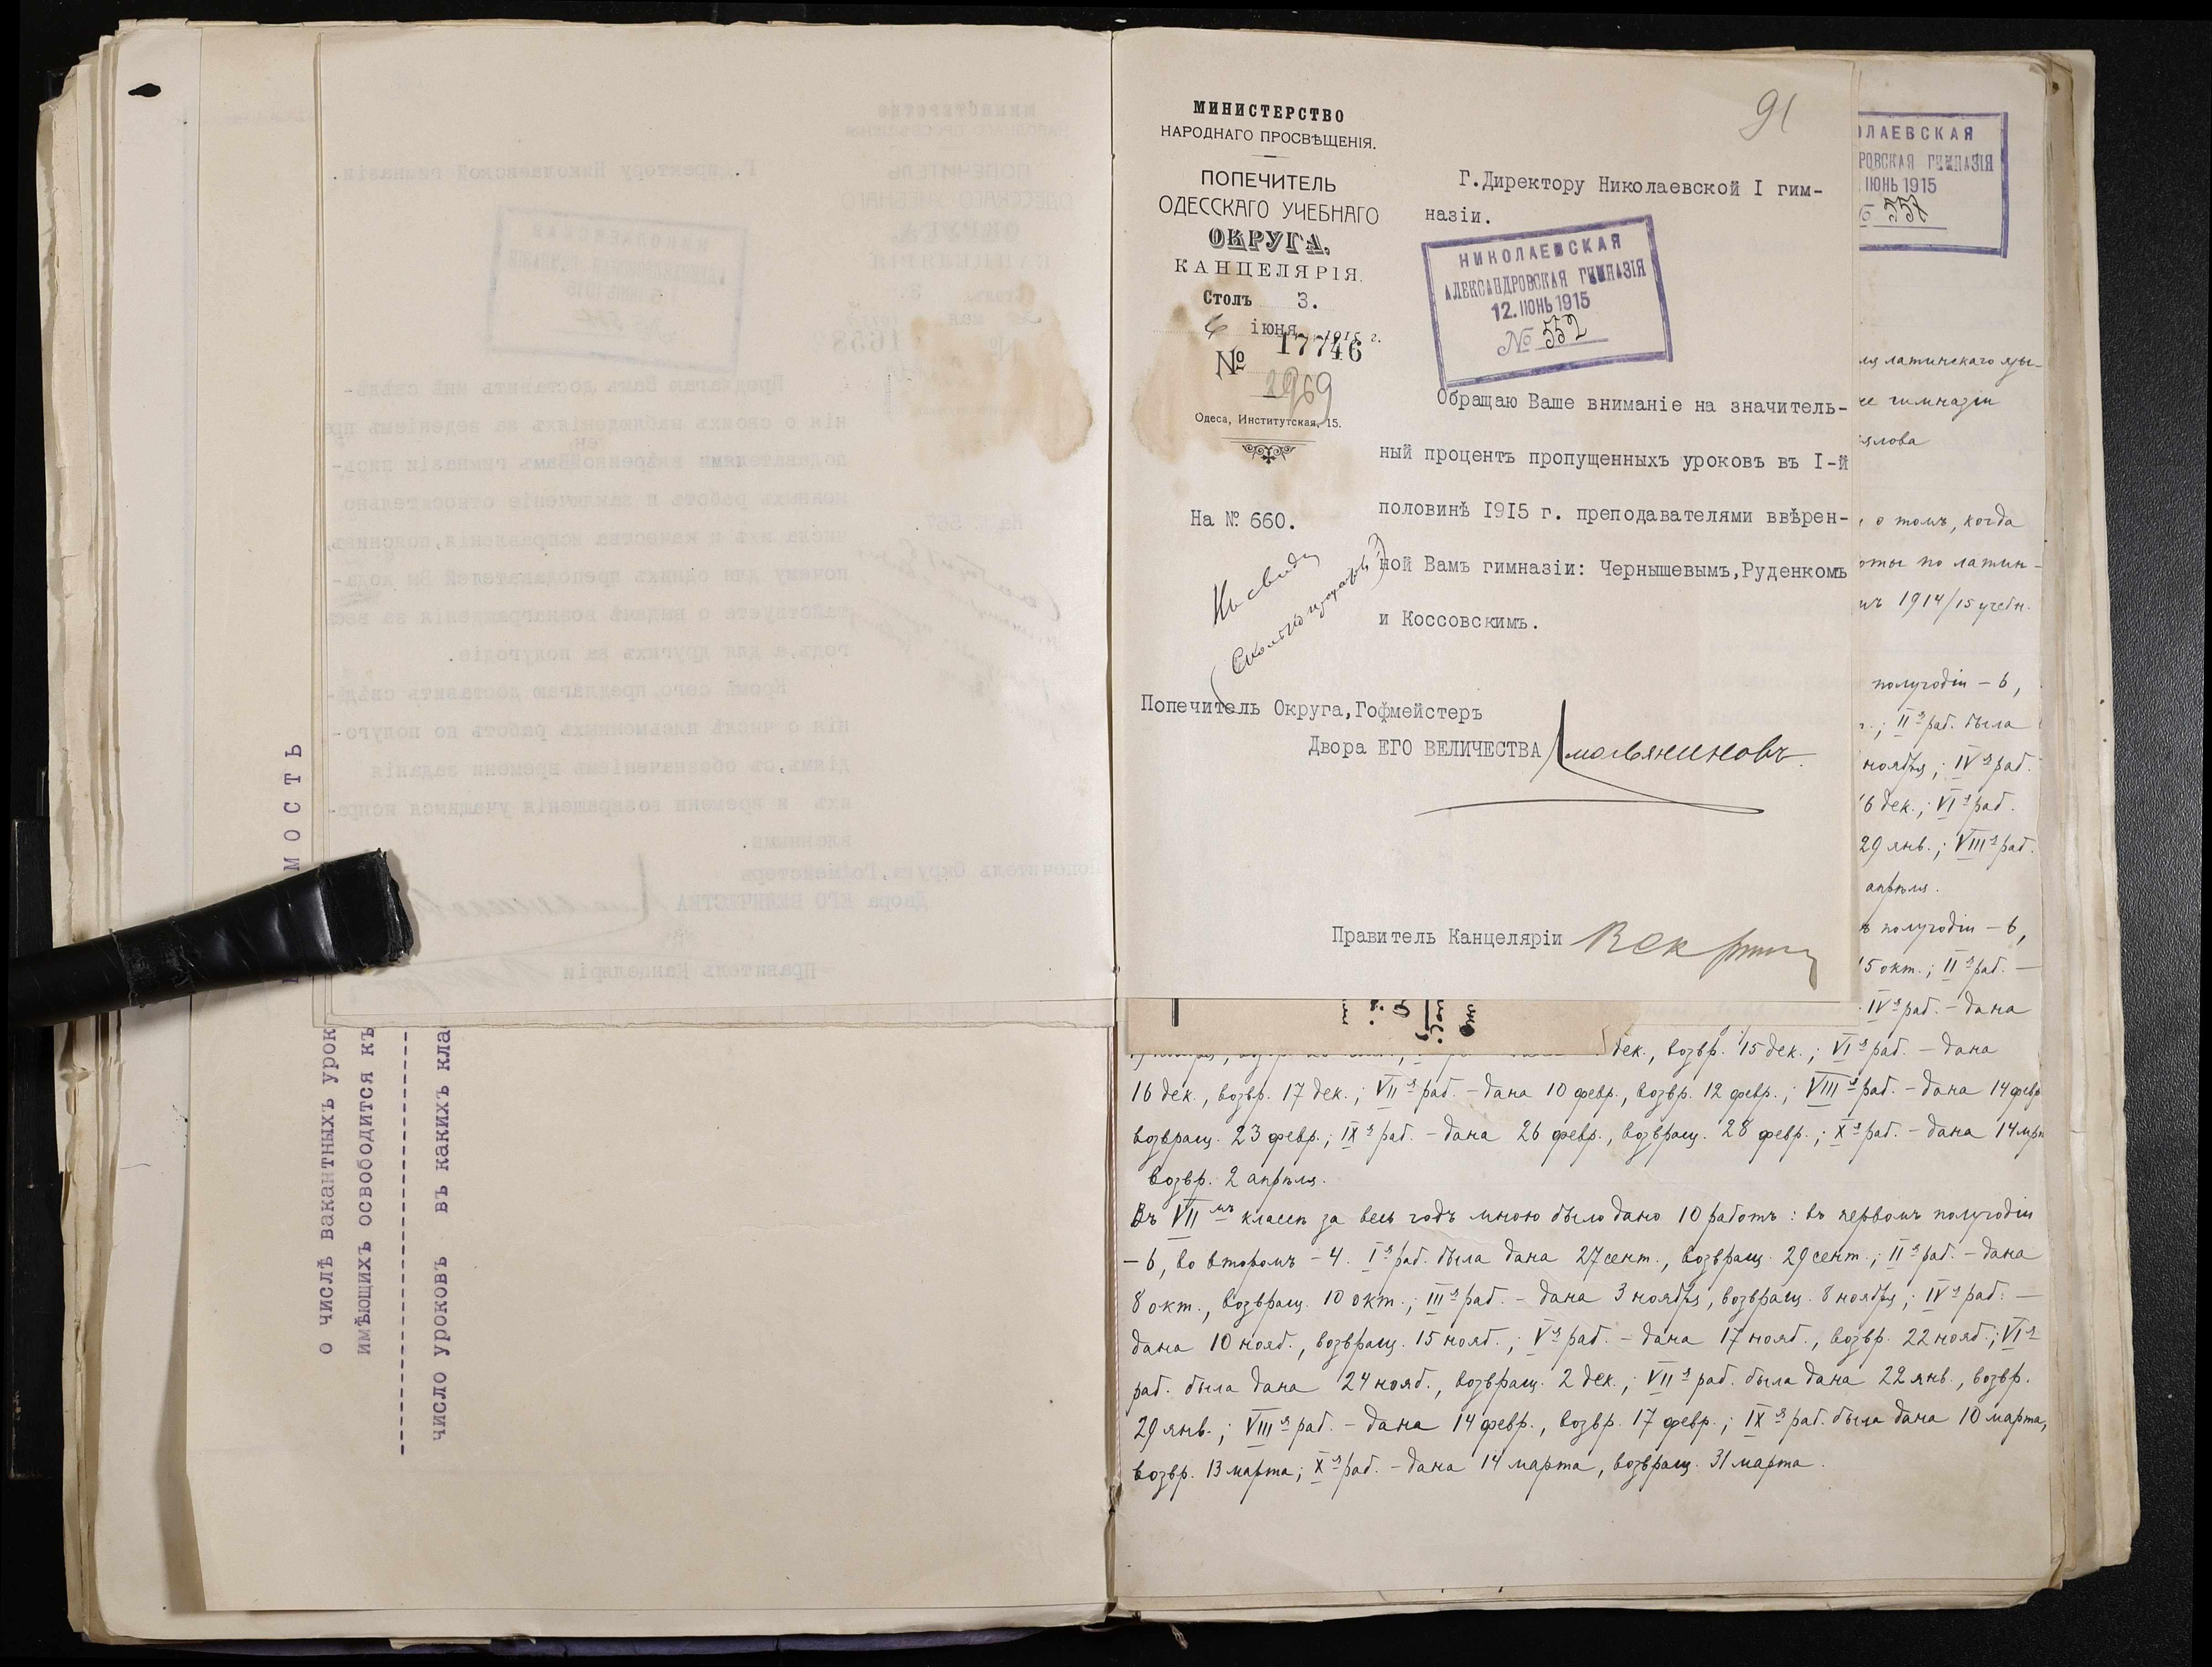 МОСТЬ
о числѣ вакантныхъ урок
имѣющихъ освободится къ
число уроковъ въ какихъ кла
91
МИНИСТЕРСТВО
НАРОДНАГО ПРОСВѢЩЕНІЯ.
ПОПЕЧИТЕЛЬ
ОДЕССКАГО УЧЕБНАГО
ОКРУГА.
КАНЦЕЛЯРІЯ.
Столъ 3.
6 іюня 1915 г.
№ 17746
2969
Одеса, Институтская, 15.
На № 660.
Г.Директору Николаевской I гим-
назіи.
НИКОЛАЕВСКАЯ
АЛЕКСАНДРОВСКАЯ ГИМНАЗІЯ
12. ІЮНЬ 1915
№ 552
Обращаю Ваше вниманіе на значитель-
ный процентъ пропущенныхъ уроковъ въ I-й
половинѣ 1915 г. преподавателями ввѣрен-
ной Вамъ гимназіи: Чернышевымъ,Руденкомъ
и Коссовскимъ.
Попечитель Округа,Гофмейстеръ
Двора ЕГО ВЕЛИЧЕСТВА Смольяниновъ.
Правитель Канцеляріи
ОЛАЕВСКАЯ
РОВСКАЯ ГИМНАЗІЯ
ІЮНЬ 1915
557
ля латинскаго язы-
ее гимназіи
ялова
, о томъ, когда
оты по латин-
мъ 1914/15 учебн.
полугодіи – 6,
г.; IIя раб. была
ноября; IVя раб.
16 дек.; VIя раб.
29 янв.; VIIIя раб.
апрѣля.
ъ полугодіи – 6,
15 окт.; IIя раб. –
IVя раб. – дана
дек., возвр. 15 дек.; VIя раб. – дана
16 дек., возвр. 17 дек.; VIIя раб. – дана 10 февр., возвр. 12 февр.; VIIIя раб. – дана 14 февр
возвращ. 23 февр.; IXя раб. – дана 26 февр., возвращ. 28 февр.; Xя раб. – дана 14 мрт
возвр. 2 апрѣля.
Въ VIIмъ классѣ за весь годъ мною было дано 10 работъ: въ первомъ полугодіи
– 6, во второмъ – 4. Iя раб. была дана 27 сент., возвращ. 29 сент.; IIя раб. – дана
8 окт., возвращ. 10 окт.; IIIя раб. – дана 3 ноября, возвращ. 8 ноября; IVя раб. –
дана 10 нояб., возвращ. 15 нояб.; Vя раб. – дана 17 нояб., возвр. 22 нояб.; VIя
раб. была дана 24 нояб., возвращ. 2 дек.; VIIя раб. была дана 22 янв., возвр.
29 янв.; VIIIя раб. – дана 14 февр., возвр. 17 февр.; IXя раб. была дана 10 марта,
возвр. 13 марта; Xя раб. – дана 14 марта, возвращ. 31 марта.